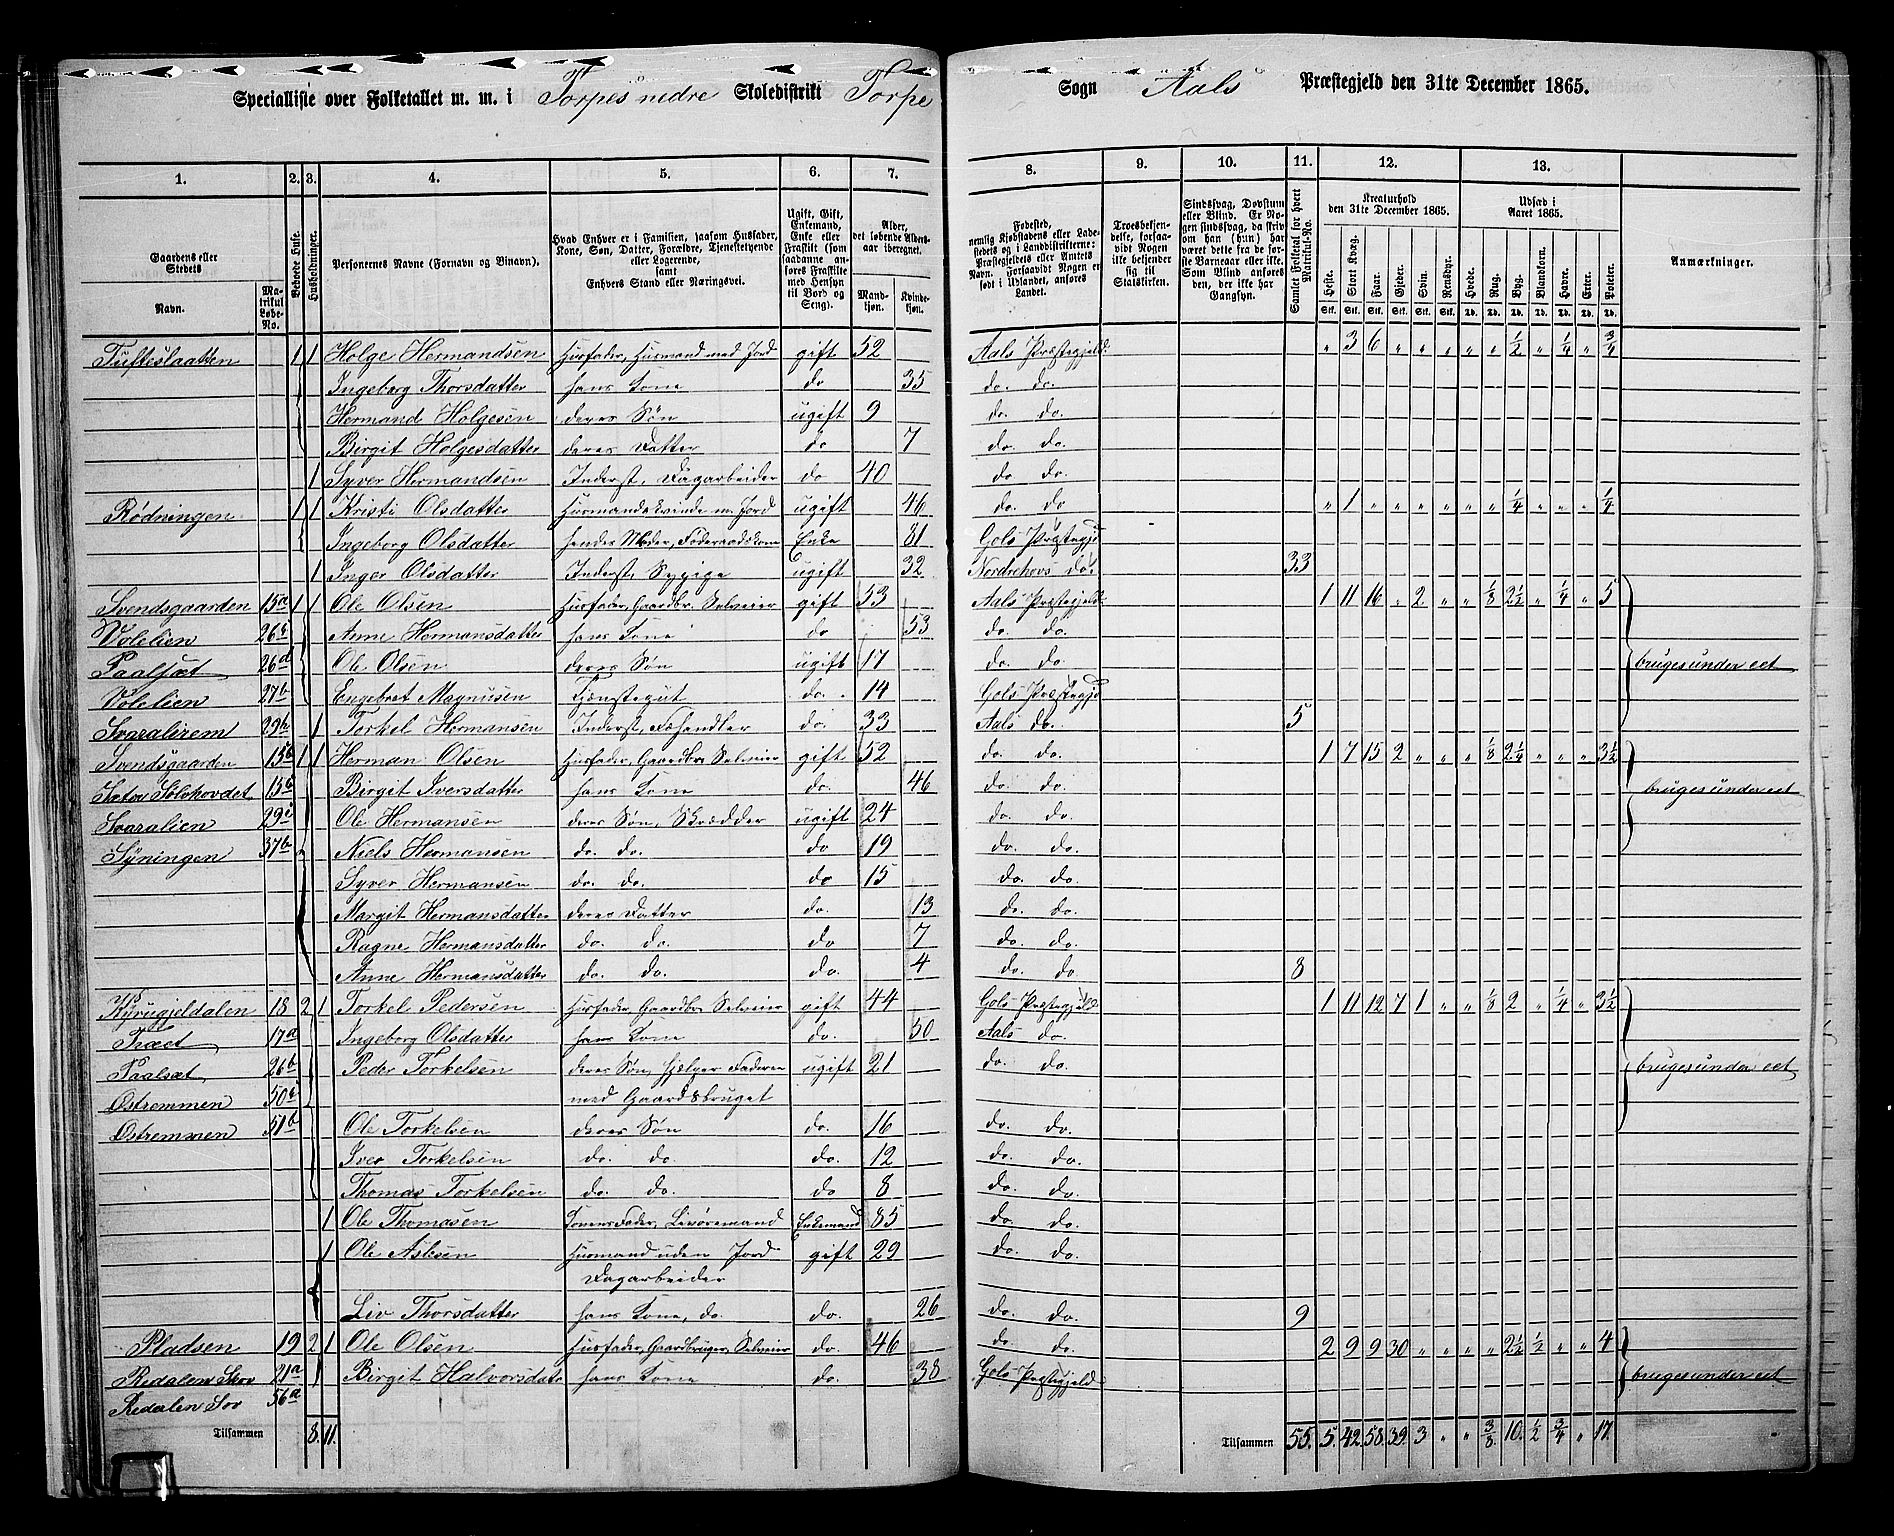 Specialliste over Folketallet m. m. i Torpes nedre Skoledistrikt Torpe Sogn Aals Præstegjeld den 31te December 1865.
1. 2. 3. 4. 5. 6. 7. 8. 9. 10. 11. 12. 13.
Gaardens eller Stedets Navn. Matrikul Løbe-No.
Beboede Huse.
Husholdninger.
Personernes Navne (Fornavn og Binavn).
Hvad Enhver er i Familien, saasom Husfader, Kone, Søn, Datter, Forældre, Tjenestetyende eller Logerende, samt Enhvers Stand eller Næringsvei.
Ugift, Gift, Enkemand, Enke eller Fraskilt (som saadanne anføres Fraskilte med Hensyn til Bord og Seng).
Alder, det løbende Aldersaar iberegnet. Mandkjøn. Kvindekjøn.
Fødested, nemlig Kjøbstadens eller Ladestedets og i Landdistrikterne: Præstegjeldets eller Amtets Navn. Forsaavidt Nogen er født i Udlandet, anføres Landet.
Troesbekjendelse, forsaavidt Nogen ikke bekjender sig til Statskirken.
Sindssvag, Døvstum eller Blind. Er Nogen sindssvag, da skriv om han (hun) har været dette fra de første Barneaar eller ikke. Som Blind anføres den, der ikke har Gangsyn.
Samlet Folketal for hvert Matrikul-No.
Kreaturhold den 31te December 1865. Heste. Stort Kvæg. Faar. Gjeder. Svin. Rensdyr.
Udsæd i Aaret 1865. Hvede. Rug. Byg. Blandkorn. Havre. Erter. Poteter.
Anmærkninger.
Tufteslaatten 1 1 Holge Hermandsen Husfader, Husmand med Jord gift 52 Aals Præstegjeld. " 3 6 " " " " " 1/2 " 1/4 " 3/4
Ingeborg Thorsdatter hans Kone do 35 do. do.
Hermand Holgesen deres Søn ugift 9 do. do.
Birgit Holgesdatter deres Datter do 7 do. do.
1 Syver Hermandsen Inderst, Dagarbeider do 40 do do
Rødningen 1 1 Kristi Olsdatter Husmandskvinde m. Jord ugift 46 do. do " 1 " " " " " " 1/4 " " " 1/4
Ingeborg Olsdatter hendes Moder, Føderaadskone Enke 81 Gols Præstegj
1 Inger Olsdatter Inderst, Sypige ugift 32 Nordrehovs do. 33
Svendsgaarden 15a 1 1 Ole Olsen Husfader, Gaardbr. Selveier gift 53 Aals Præstegjeld 1 11 16 " 2 " " 1/8 2 1/2 " 1/4 " 5
Volelien Anne Hermansdatter hans Kone do 53 do. do.
Paalsæt 26d Ole Olsen deres Søn ugift 17 do. do. bruges under eet
Volelien 27b Engebret Magnusen Tjenestegut do. 14 Gols Præstegj
29h 1 Torkel Hermansen Inderst, Fæhandler do. 33 Aals do. 5
Svendsgaarden 15b 1 1 Herman Olsen Husfader, Gaardbr. Selveier gift 52 do. do. 1 7 15 2 " " " 1/8 2 1/4 " " " 3 1/2
Birgit Iversdatter hans Kone do. 46 do. do. bruges under eet
Svaralien 29i Ole Hermansen deres Søn, Skrædder ugift 24 do. do.
Syningen 37b Niels Hermansen do. do. do 19 do. do.
Syver Hermansen do. do. do 15 do. do.
Margit Hermansdatter deres Datter do. 13 do. do.
Ragne Hermansdatter do. do. do 7 do. do.
Anne Hermansdatter do. do. do. 4 do. do 8
18 2 1 Torkel Pedersen Husfader, Gaardbr. Selveier gift 44 Gols Præstegjeld 1 11 12 7 1 " " 1/8 2 " 1/4 " 3 1/2
Træet 17a Ingeborg Olsdatter hans Kone do. 50 Aals do.
Paalsæt 26b Peder Torkelsen deres Søn, hjelper Faderen ugift 21 do. do. bruges under eet
Østremmen med Gaardsbruget
Østremmen 51b Ole Torkelsen deres Søn do. 16 do. do.
Iver Torkelsen do. do. do. 12 do. do.
Thomas Torkelsen do. do. do 8 do. do.
1 Ole Thomasen Konens Fader, Livøremand Enkemand 85 do. do.
1 Ole Aslesen Husmand uden Jord gift 29 do. do.
Dagarbeider
Liv Thorsdatter hans Kone, do. do. 26 do. do. 9
Pladsen 19 2 1 Ole Olsen Husfader, Gaardbruger, Selveier do. 46 do. do. 2 9 9 30 " " " " 2 1/2 1/2 " " 4
Redalen Skov 21a Birgit Halvorsdatt hans Kone do. 38 Gols Præstegjeld bruges under eet
Redalen 56a
Tilsammen 8. 11. Tilsammen 55. 5. 42. 58. 39. 3 " " 3/8 10. 1/2 3/4 " 17.